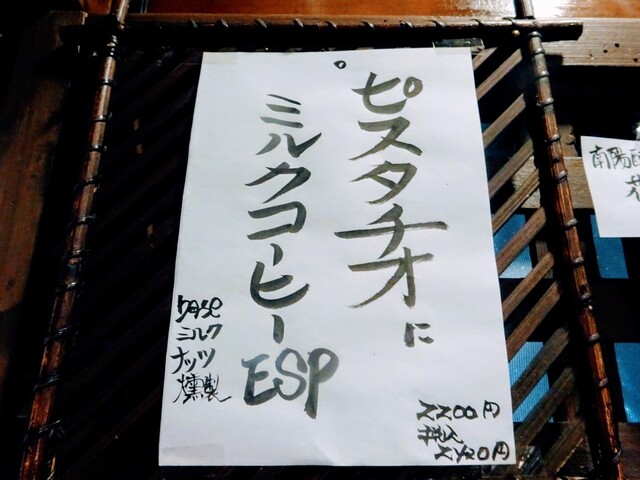 ピスタチオに
ミルクコーヒー
ESP
base
ミルク
ナッツ
燻製
2200円
税込
2420円
南陽